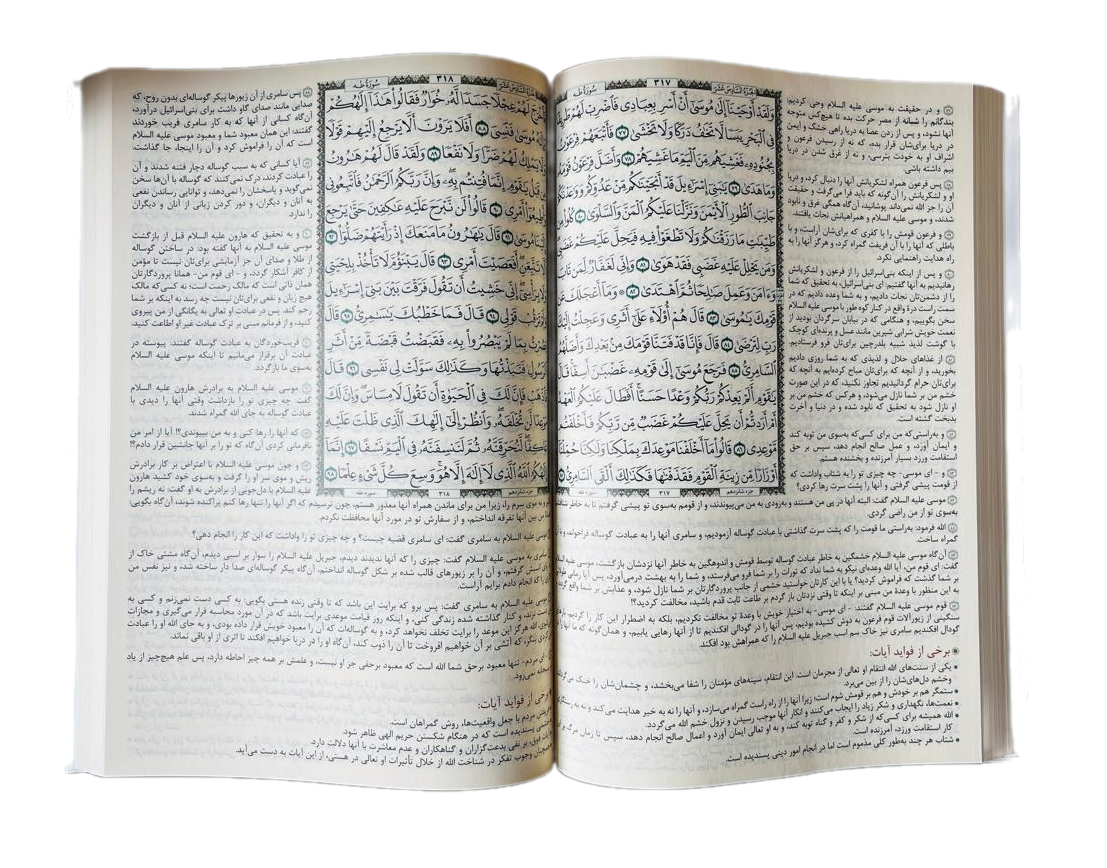 سُورَةُ طه
٣١٧
الجُزْءُ السَّادِسَ عَشَرَ
وَلَقَدْ أَوْحَيْنَا إِلَىٰ مُوسَىٰ أَنْ أَسْرِ بِعِبَادِي فَاضْرِبْ لَهُمْ
فِي الْبَحْرِ يَبَسًا لَّا تَخَافُ دَرَكًا وَلَا تَخْشَىٰ ٧٧ فَأَتْبَعَهُمْ فِرْعَوْنُ
بِجُنُودِهِ فَغَشِيَهُم مِّنَ الْيَمِّ مَا غَشِيَهُمْ ٧٨ وَأَضَلَّ فِرْعَوْنُ
وَمَا هَدَىٰ ٧٩ يَٰبَنِي إِسْرَٰٓءِيلَ قَدْ أَنجَيْنَٰكُم مِّنْ عَدُوِّكُمْ
جَانِبَ الطُّورِ الْأَيْمَنَ وَنَزَّلْنَا عَلَيْكُمُ الْمَنَّ وَالسَّلْوَىٰ ٨٠
طَيِّبَٰتِ مَا رَزَقْنَٰكُمْ وَلَا تَطْغَوْا فِيهِ فَيَحِلَّ عَلَيْكُمْ
وَمَن يَحْلِلْ عَلَيْهِ غَضَبِي فَقَدْ هَوَىٰ ٨١ وَإِنِّي لَغَفَّارٌ لِّمَن
وَءَامَنَ وَعَمِلَ صَٰلِحًا ثُمَّ اهْتَدَىٰ ٨٢ وَمَا أَعْجَلَكَ
قَوْمِكَ يَٰمُوسَىٰ ٨٣ قَالَ هُمْ أُولَاءِ عَلَىٰ أَثَرِي وَعَجِلْتُ
رَبِّ لِتَرْضَىٰ ٨٤ قَالَ فَإِنَّا قَدْ فَتَنَّا قَوْمَكَ مِنْ بَعْدِكَ
السَّامِرِيُّ ٨٥ فَرَجَعَ مُوسَىٰ إِلَىٰ قَوْمِهِ غَضْبَٰنَ أَسِفًا
يَٰقَوْمِ أَلَمْ يَعِدْكُمْ رَبُّكُمْ وَعْدًا حَسَنًا أَفَطَالَ عَلَيْكُمُ
أَمْ أَرَدتُّمْ أَن يَحِلَّ عَلَيْكُمْ غَضَبٌ مِّن رَّبِّكُمْ
مَّوْعِدِي ٨٦ قَالُوا مَا أَخْلَفْنَا مَوْعِدَكَ بِمَلْكِنَا وَلَٰكِنَّا
أَوْزَارًا مِّن زِينَةِ الْقَوْمِ فَقَذَفْنَٰهَا فَكَذَٰلِكَ أَلْقَى السَّامِرِيُّ
جزء شانزدهم
٣١٧
سوره طه
و در حقیقت به موسی علیه السلام وحی کردیم:
بندگانم را شبانه از مصر حرکت بده تا هیچ‌کس متوجه
آنها نشود، و پس از زدن عصا به دریا راهی خشک و ایمن
در دریا برای‌شان قرار بده، که نه از رسیدن فرعون و
اشراف او به خودت بترسی، و نه از غرق شدن در دریا
بیم داشته باشی.
پس فرعون همراه لشکریانش آنها را دنبال کرد، و دریا
او و لشکریانش را آن‌گونه که باید فرا می‌گرفت و حقیقت
آن را جز الله نمی‌داند پوشانید، آن‌گاه همگی غرق و نابود
شدند، و موسی علیه السلام و همراهیانش نجات یافتند.
و فرعون قومش را با کفری که برای‌شان آراست، و با
باطلی که آنها را با آن فریفت گمراه کرد، و هرگز آنها را به
راه هدایت راهنمایی نکرد.
و پس از اینکه بنی‌اسرائیل را از فرعون و لشکریانش
رهانیدیم به آنها گفتیم: ای بنی‌اسرائیل، به تحقیق که شما
را از دشمن‌تان نجات دادیم، و به شما وعده دادیم که در
سمت راست درۀ واقع در کنار کوه طور با موسی علیه السلام
سخن بگوییم، و هنگامی که در بیابان سرگردان بودید از
نعمت خویش شرابی شیرین مانند عسل و پرنده‌ای کوچک
با گوشت لذید شبیه بلدرچین برای‌تان فرو فرستادیم.
از غذاهای حلال و لذیذی که به شما روزی دادیم
بخورید، و از آنچه که برای‌تان مباح کرده‌ایم به آنچه که
برای‌تان حرام گردانیدیم تجاوز نکنید، که در این صورت
خشم من بر شما نازل می‌شود، و هرکس که خشم من بر
او نازل شود به تحقیق که نابود شده و در دنیا و آخرت
بدبخت گشته است.
و به‌راستی‌که من برای کسی‌که به‌سوی من توبه کند
و ایمان آورد، و عمل صالح انجام دهد، سپس بر حق
استقامت ورزد بسیار آمرزنده و بخشنده هستم.
و - ای موسی- چه چیزی تو را به شتاب واداشت که
از قومت پیشی گرفتی و آنها را پشت سرت رها کردی؟
موسی علیه السلام گفت البته آنها در پی من هستند و به‌زودی به من می‌پیوندند، و از قومم به‌سوی تو پیشی گرفتم تا
به‌سوی تو از من راضی گردی.
الله فرمود: به‌راستی ما قومت را که پشت سرت گذاشتی با عبادت گوساله آزمودیم، و سامری آنها را به عبادت گوساله
گمراه ساخت.
آن‌گاه موسی علیه السلام خشمگین به خاطر عبادت گوساله توسط قومش و اندوهگین به خاطر آنها نزدشان بازگشت. موسی
گفت: ای قوم من، آیا الله وعده‌ای نیکو به شما نداد که تورات را بر شما فرو می‌فرستد، و شما را به بهشت درمی‌آورد، پس آیا زمانی
بر شما گذشت که فراموش کردید؟ یا با این کارتان خواستید خشمی از جانب پروردگارتان بر شما نازل شود، و عذابش بر شما واقع
به این منظور با وعدۀ من مبنی بر اینکه تا وقتی نزدتان باز گردم بر طاعت ثابت قدم باشید، مخالفت کردید؟!
قوم موسی علیه السلام گفتند: - ای موسی- به اختیار خویش با وعدۀ تو مخالفت نکردیم، بلکه به اضطرار این کار را کردیم
سنگینی از زیورآلات قوم فرعون به دوش کشیده بودیم، پس آنها را در گودالی افکندیم تا از آنها رهایی یابیم، و همان‌گونه که ما آنها
گودال افکندیم سامری نیز خاک سم اسب جبریل علیه السلام را که همراهش بود افکند.
برخی از فواید آیات:
• یکی از سنت‌های الله انتقام او تعالی از مجرمان است. این انتقام، سینه‌های مؤمنان را شفا می‌بخشد، و چشمان‌شان را خنک
وخشم دل‌های‌شان را از بین می‌برد.
• ستمگر هم بر خودش و هم بر قومش شوم است؛ زیرا آنها را از راه راست گمراه می‌سازد، و آنها را نه به خیر هدایت می‌کند و نه
• نعمت‌ها، نگهداری و شکر زیاد را ایجاب می‌کنند و انکار آنها موجب رسیدن و نزول خشم الله می‌گردد.
• الله همیشه برای کسی‌که از شکر و کفر و گناه توبه کند، و به او تعالی ایمان آورد و اعمال صالح انجام دهد، سپس تا زمان مرگ
کار استقامت ورزد، آمرزنده است.
• شتاب هر چند به‌طور کلی مذموم است اما در انجام امور دینی پسندیده است.
٣١٨
سُورَةُ طه
لَهُمْ عِجْلًا جَسَدًا لَّهُ خُوَارٌ فَقَالُوا هَٰذَا إِلَٰهُكُمْ
مُوسَىٰ فَنَسِيَ ٨٨ أَفَلَا يَرَوْنَ أَلَّا يَرْجِعُ إِلَيْهِمْ قَوْلًا
يَمْلِكُ لَهُمْ ضَرًّا وَلَا نَفْعًا ٨٩ وَلَقَدْ قَالَ لَهُمْ هَٰرُونُ
قَبْلُ يَٰقَوْمِ إِنَّمَا فُتِنتُم بِهِ وَإِنَّ رَبَّكُمُ الرَّحْمَٰنُ فَاتَّبِعُونِي
أَمْرِي ٩٠ قَالُوا لَن نَّبْرَحَ عَلَيْهِ عَٰكِفِينَ حَتَّىٰ يَرْجِعَ
مُوسَىٰ ٩١ قَالَ يَٰهَٰرُونُ مَا مَنَعَكَ إِذْ رَأَيْتَهُمْ ضَلُّوا ٩٢
تَتَّبِعَنِ أَفَعَصَيْتَ أَمْرِي ٩٣ قَالَ يَبْنَؤُمَّ لَا تَأْخُذْ بِلِحْيَتِي
بِرَأْسِي إِنِّي خَشِيتُ أَن تَقُولَ فَرَّقْتَ بَيْنَ بَنِي إِسْرَٰٓءِيلَ
تَرْقُبْ قَوْلِي ٩٤ قَالَ فَمَا خَطْبُكَ يَٰسَٰمِرِيُّ ٩٥ قَالَ
بِمَا لَمْ يَبْصُرُوا بِهِ فَقَبَضْتُ قَبْضَةً مِّنْ أَثَرِ
الرَّسُولِ فَنَبَذْتُهَا وَكَذَٰلِكَ سَوَّلَتْ لِي نَفْسِي ٩٦ قَالَ
فَاذْهَبْ فَإِنَّ لَكَ فِي الْحَيَوٰةِ أَن تَقُولَ لَا مِسَاسَ وَإِنَّ لَكَ
تُخْلَفَهُ وَانظُرْ إِلَىٰ إِلَٰهِكَ الَّذِي ظَلْتَ عَلَيْهِ
لَّنُحَرِّقَنَّهُ ثُمَّ لَنَنسِفَنَّهُ فِي الْيَمِّ نَسْفًا ٩٧ إِنَّمَا
اللَّهُ الَّذِي لَا إِلَٰهَ إِلَّا هُوَ وَسِعَ كُلَّ شَيْءٍ عِلْمًا ٩٨
جزء شانزدهم
٣١٨
سوره طه
پس سامری از آن زیورها پیکر گوساله‌ای بدون روح، که
صدایی مانند صدای گاو داشت برای بنی‌اسرائیل درآورد،
آن‌گاه کسانی از آنها که به کار سامری فریب خوردند
گفتند: این همان معبود شما و معبود موسی علیه السلام
است که آن را فراموش کرد و آن را اینجا، جا گذاشت.
آیا کسانی که به سبب گوساله دچار فتنه شدند و آن
را عبادت کردند، درک نمی‌کنند که گوساله با آن‌ها سخن
نمی‌گوید و پاسخ‌شان را نمی‌دهد، و توانایی رساندن نفعی
به آنان و دیگران، و دور کردن زیانی از آنان و دیگران
را ندارد.
و به تحقیق که هارون علیه السلام قبل از بازگشت
موسی علیه السلام به آنها گفته بود: در ساختن گوساله
از طلا و صدای آن جز آزمایشی برای‌تان نیست تا مؤمن
از کافر آشکار گردد، و - ای قوم من- همانا پروردگارتان
همان ذاتی است که مالک رحمت است؛ نه کسی که مالک
هیچ زیان و نفعی برای‌تان نیست چه رسد به اینکه بر شما
رحم کند. پس در عبادت او تعالی به یگانگی از من پیروی
کنید، و از فرمانم مبنی بر ترک عبادت غیر او اطاعت کنید.
فریب‌خوردگان به عبادت گوساله گفتند: پیوسته در
عبادت آن برقرار می‌مانیم تا اینکه موسی علیه السلام
به‌سوی ما بازگردد.
موسی علیه السلام به برادرش هارون علیه السلام
گفت چه چیزی تو را بازداشت وقتی آنها را دیدی با
عبادت گوساله به جای الله گمراه شدند.
که آنها را رها کنی و به من بپیوندی؟! آیا از امر من
نافرمانی کردی آن‌گاه که تو را بر آنها جانشین قرار دادم؟!
و چون موسی علیه السلام با اعتراض بر کار برادرش
ریش و موی سر او را گرفت و به‌سوی خود کشید هارون
علیه السلام با دل‌جویی از برادرش به او گفت: نه ریشم را
و نه موی سرم را؛ زیرا من برای ماندن همراه آنها معذور هستم، چون ترسیدم که اگر آنها را تنها رها کنم پراکنده شوند، آن‌گاه بگویی:
من بین آنها تفرقه انداختم، و از سفارش تو در مورد آنها محافظت نکردم.
موسی علیه السلام به سامری گفت: ای سامری قضیه چیست؟ و چه چیزی تو را واداشت که این کار را انجام دهی؟
سامری به موسی علیه السلام گفت: چیزی را که آنها ندیدند دیدم، جبریل علیه السلام را سوار بر اسبی دیدم، آن‌گاه مشتی خاک از
اسبش گرفتم، و آن را بر زیورهای قالب شده بر شکل گوساله انداختم، آن‌گاه پیکر گوساله‌ای صدا دار ساخته شد، و نیز نفس من
را که انجام دادم برایم آراست.
موسی علیه السلام به سامری گفت: پس برو که برایت این باشد که تا وقتی زنده هستی بگویی: به کسی دست نمی‌زنم و کسی به
دست نزند، و کنار گذاشته شده زندگی کنی، و اینکه روز قیامت موعدی برایت باشد که در آن مورد محاسبه قرار می‌گیری و مجازات
الله هرگز این موعد را برایت تخلف نخواهد کرد، و به گوساله‌ات که آن را معبود خویش قرار داده بودی، و به جای الله او را عبادت
کردی بنگر، که آتشی بر آن خواهیم افروخت تا آن را ذوب کند، آن‌گاه او را در دریا خواهیم افکند تا اثری از او باقی نماند.
ای مردم- تنها معبود برحق شما الله است که معبود برحقی جز او نیست، و علمش بر همه چیز احاطه دارد، پس علم هیچ‌چیز از یاد
نمی‌رود.
برخی از فواید آیات:
مردم با جعل واقعیت‌ها، روش گمراهان است.
پسندیده است که در هنگام شکستن حریم الهی ظاهر شود.
بر نفی بدعت‌گزاران و گناهکاران و عدم معاشرت با آنها دلالت دارد.
وجوب تفکر در شناخت الله از خلال تأثیرات او تعالی در هستی، از این آیات به دست می‌آید.